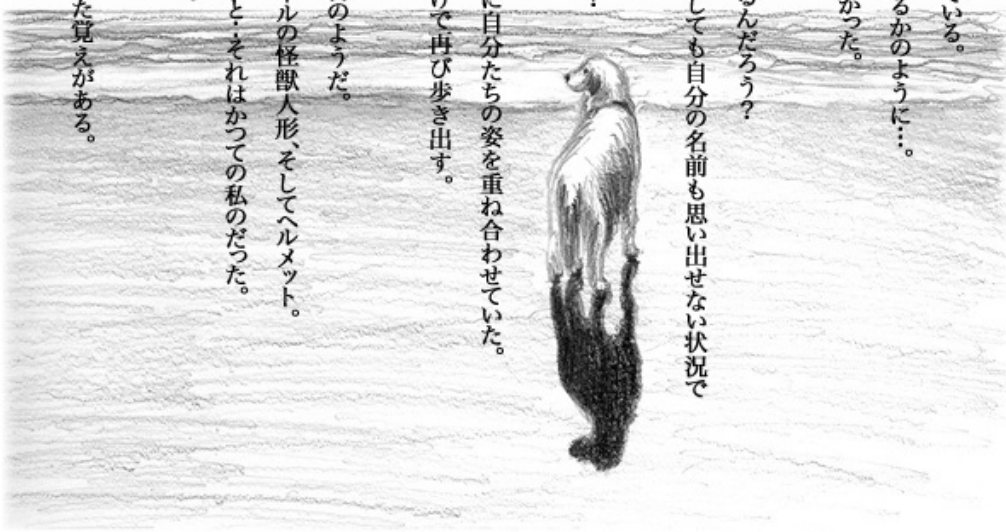 いる。
るかのように…。
かった。
るんだろう？
しても自分の名前も思い出せない状況で
？
に自分たちの姿を重ね合わせていた。
けで再び歩き出す。
のようだ。
ルの怪獣人形、そしてヘルメット。
と‥それはかつての私のだった。
た覚えがある。